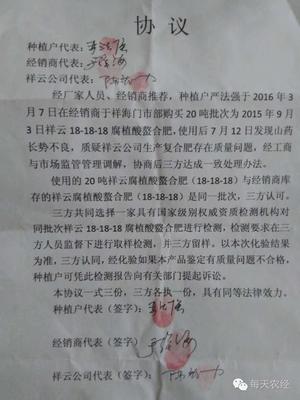 协 议
种植户代表：
经销商代表：
祥云公司代表：
经厂家人员、经销商推荐，种植户严法强于 2016 年 3
月 7 日在经销商于祥海门市部购买 20 吨批次为 2015 年 9 月
3 日祥云 18-18-18 腐植酸螯合肥，使用后 7 月 12 日发现山药
长势不良，质疑祥云公司生产复合肥存在质量问题，经工商
与市场监管管理调解，协商后三方达成一致处理办法。
使用的 20 吨祥云腐植酸螯合肥（18-18-18）与经销商库
存的祥云腐植酸螯合肥（18-18-18）是同一批次，三方认可。
三方共同选择一家具有国家级别权威资质检测机构对
同批次祥云 18-18-18 腐植酸螯合肥进行检测，检测要求在三
方人员监督下进行取样检测，并三方留样。以本次化验结果
为准，三方认同，经化验如果本产品鉴定有质量问题不合格，
种植户可凭此检测报告向有关部门提起诉讼。
本协议一式三份，三方各执一份，具有同等法律效力。
种植户代表（签字）：
经销商代表（签字）：
祥云公司代表（签字）：
每天农经